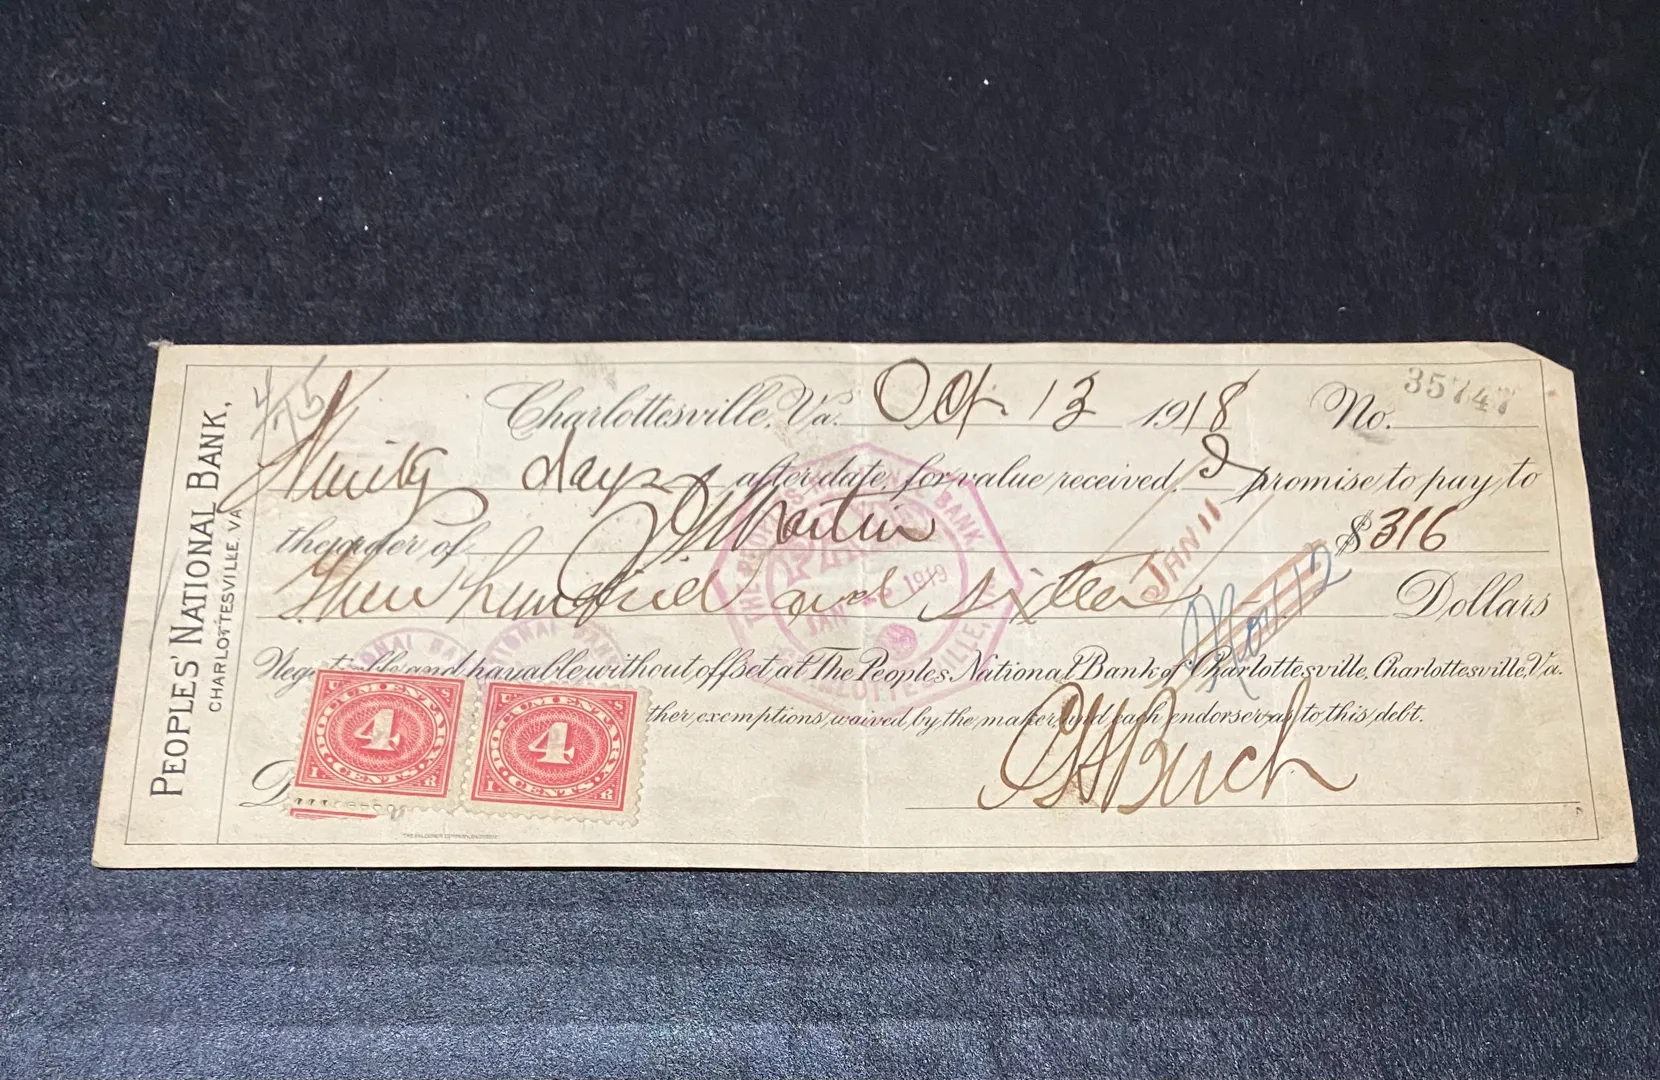 PEOPLES' NATIONAL BANK,
CHARLOTTESVILLE, VA.
Charlottesville, Va. Oct 13 1918 No. 35747
Ninety days after date, for value received, I promise to pay to
the order of Martin $316
Three hundred and sixteen Dollars
JAN 11
THE PEOPLES NATIONAL BANK
PAID
JAN 1919
CHARLOTTESVILLE, VA.
Negotiable and payable without offset at The Peoples National Bank of Charlottesville, Charlottesville, Va.
ther exemptions waived by the maker and each endorser as to this debt.
NATIONAL BANK
NATIONAL BANK
U.S.
DOCUMENTARY
4
CENTS
I.R.
U.S.
DOCUMENTARY
4
CENTS
I.R.
Burch